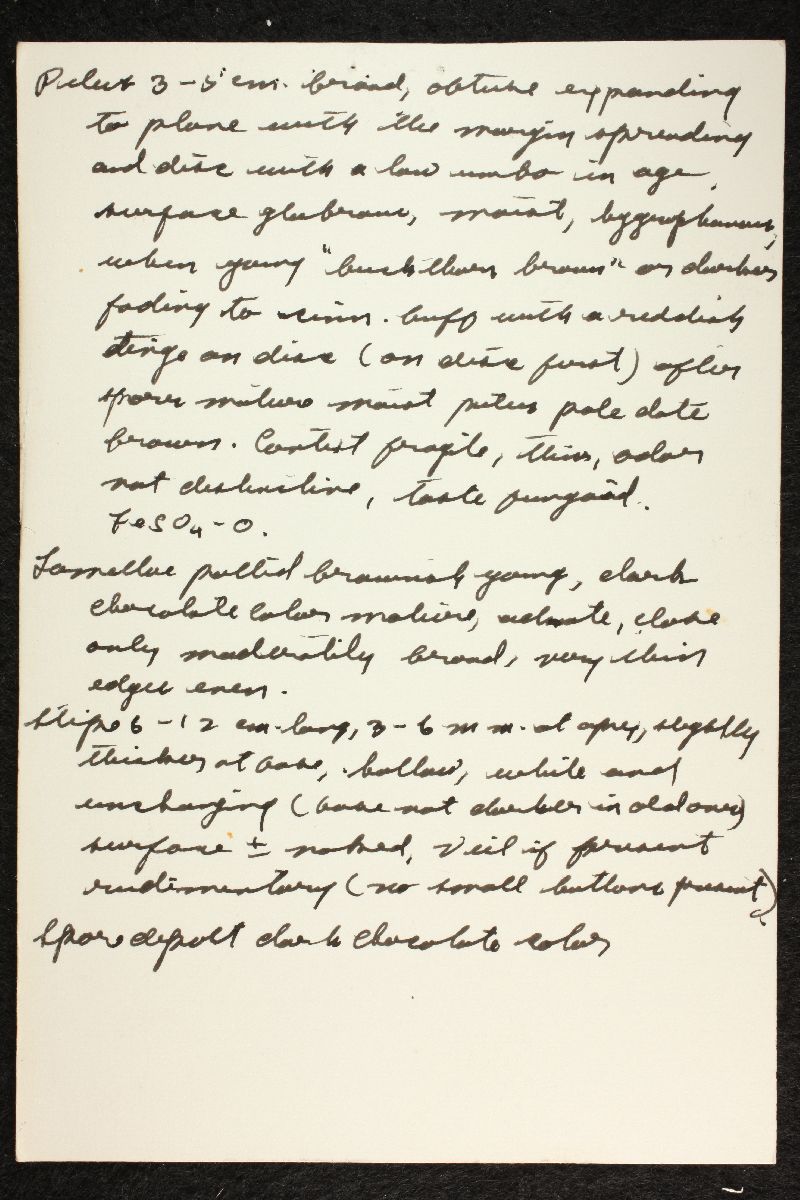 Pileus 3-5 cm. broad, obtuse expanding
to plane with the margin spreading
and disc with a low umbo in age,
surface glabrous, moist, hygrophanous,
when young "buckthorn brown" or darker
fading to cinn. buff with a reddish
tinge on disc (on disc first) after
spores mature moist pileus pale date
brown. Context fragile, thin, odor
not distinctive, taste pungoid.
FeSO4-0.
Lamellae pallid brownish young, dark
chocolate color mature, adnate, close
only moderately broad, very thin
edges even.
Stipe 6-12 cm. long, 3-6 m m. at apex, slightly
thicker at base, hollow, white and
unchanging (base not darker in old ones)
surface ± naked, Veil if present
rudimentary (no small buttons present)
Spore depolt dark chocolate color